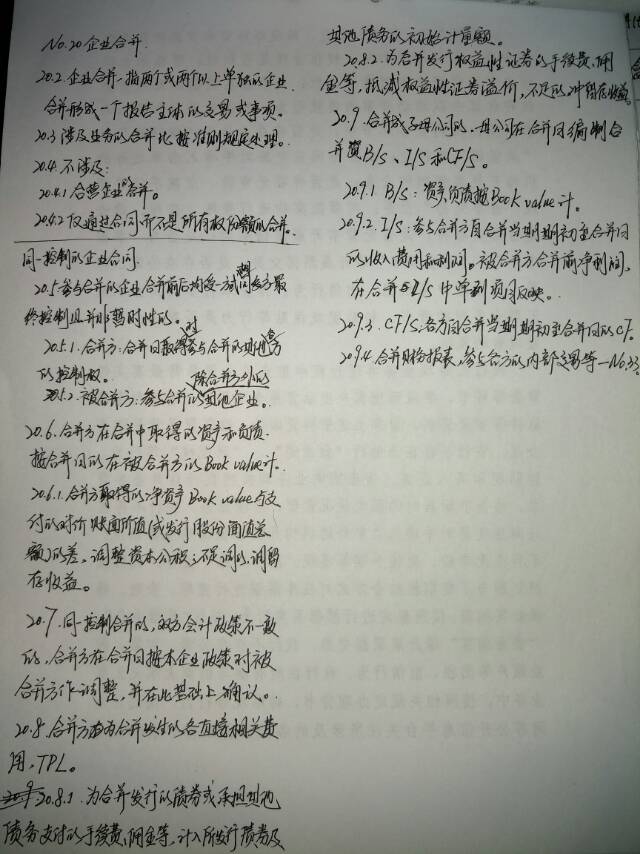 No.20 企业合并.
20.2. 企业合并, 指两个或两个以上单独的企业
合并形成一个报告主体的交易或事项。
20.3 涉及业务的合并比按准则规定处理。
20.4. 不涉及:
20.4.1 合营企业的合并。
20.4.2 仅通过合同而不是所有权份额的合并.
同一控制的企业合同.
20.5 参与合并的企业合并前后均受一方或相同多方最
终控制且并非暂时性的。
20.5.1. 合并方:合并日取得对参与合并的其他方
的控制权.
20.5.2. 被合并方:参与合并的除合并方外的其他企业。
20.6. 合并方在合并中取得的资产和负债.
按合并日的在被合并方的 Book value 计.
20.6.1. 合并方取得的净资产 Book value 与支
付的对价账面价值(或发行股份面值总
额)的差, 调整资本公积;不足调的,调留
存收益。
20.7. 同一控制合并的, 双方会计政策不一致
的, 合并方在合并日按本企业政策对被
合并方作调整, 并在此基础上确认。
20.8. 合并方为合并发生的各直接相关费
用, TPL。
20.8.1. 为合并发行的债券或承担其他
债务支付的手续费、佣金等, 计入所发行债券及
其他债务的初始计量额。
20.8.2. 为合并发行权益性证券的手续费、佣
金等, 抵减权益性证券溢价, 不足的, 冲留存收益.
20.9. 合并成子母公司的. 母公司在合并日编制合
并 B/S、I/S 和 CF/S。
20.9.1 B/S: 资产负债按 Book value 计.
20.9.2. I/S: 参与合并方自合并当期期初至合并日
的收入费用和利润。被合并方合并前净利润,
在合并 I/S 中单列项目反映。
20.9.3. CF/S, 各方自合并当期期初至合并日的CF.
20.9.4. 合并财务报表, 参与各方的内部交易等—No.33.